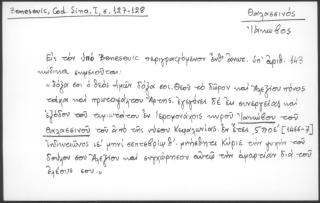 Benesevic, Cod. Sina, I, σ. 127-128
Θαλασσινός
Ἰάκωβος
Εἰς τὸν ὑπὸ Benesevic περιγραφόμενον ἐνθ' ἀνωτ. ὑπ' ἀριθ. 143
κώδικα σημειοῦται:
"δόξα σοι ὁ Θεὸς ἡμῶν δόξα σοι. Θεοῦ τὸ δῶρον καὶ Ἀλεξίου πόνος
καὶ πρωτοψάλτου Ἄρτης. ἐγεγόνει δὲ ἐκ συνεργείας καὶ
ἐξόδου τοῦ ἐν ἱερομονάχοις κυροῦ Ἰακώβου τοῦ
Θαλασσινοῦ τοῦ ἀπὸ τῆς νήσου Κεφαλωνίας ἐν ἔτει [1466-7]
ἰνδικτιῶνος ιε' μηνὶ σεπτεβρίῳ μνήσθητι Κύριε τὴν ψυχὴν τοῦ
δούλου σου Ἀλεξίου καὶ συγχώρησον αὐτῷ τὴν ἁμαρτίαν διὰ τοῦ
ἐλέους σου."